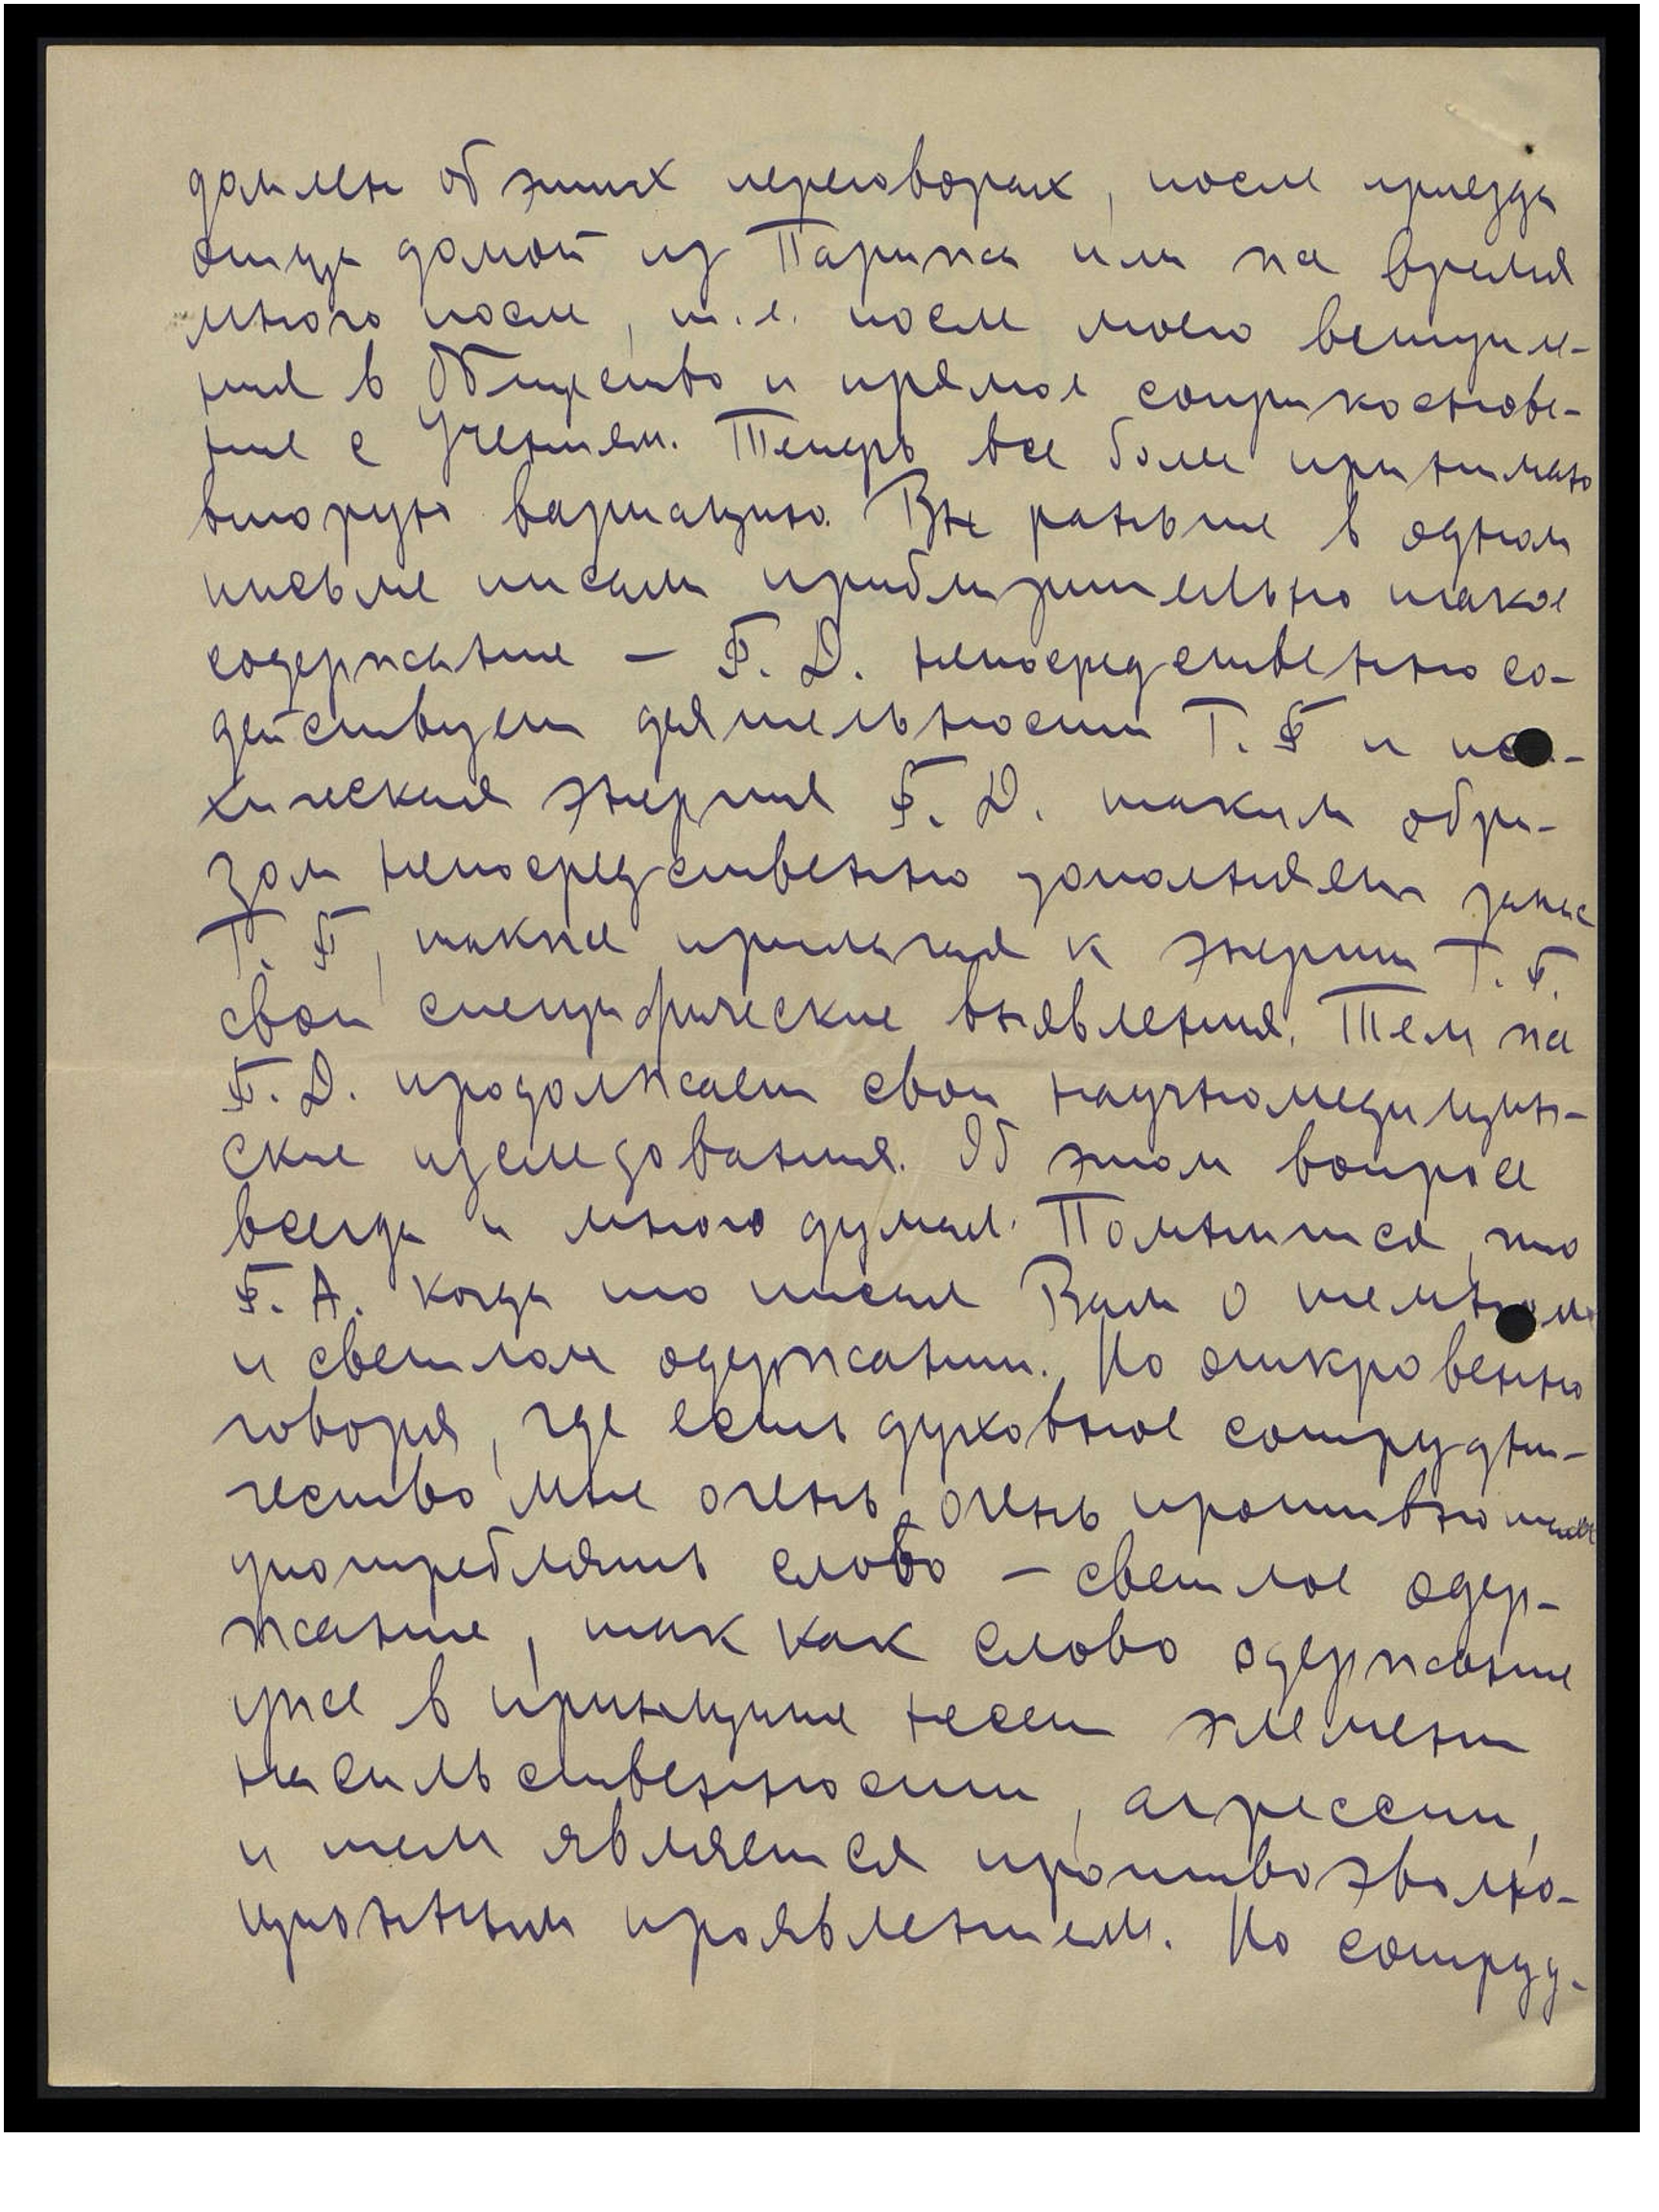 домлен об этих переговорах, после приезда
отца домой из Парижа или же время
много после, т.е. после моего вступле-
ния в Общество и прямое соприкоснове-
ние с Учением. Теперь все более принимаю
вторую вариацию. Вы раньше в одном
письме писали приблизительно такое
содержание – Ф. Д. непосредственно со-
действует деятельности Г. Ф и пси-
хическая энергия Ф. Д. таким обра-
зом непосредственно дополняет запас
Г. Ф, также прилагая к энергии Г. Ф.
свои специфические выявления. Тем же
Ф. Д. продолжает свои научномедицин-
ские изследования. Об этом вопросе
всегда и много думал. Помнится, что
Ф. А. когда то писал Вам о темном
и светлом одержании. Но откровенно
говоря, где есть духовное сотрудни-
чество мне очень, очень противно
употреблять слово – светлое одер-
жание, так как слово одержание
уже в принципе несет элемент
насильственности, агрессии,
и тем является противоэволю-
ционным проявлением. Но сотруд-